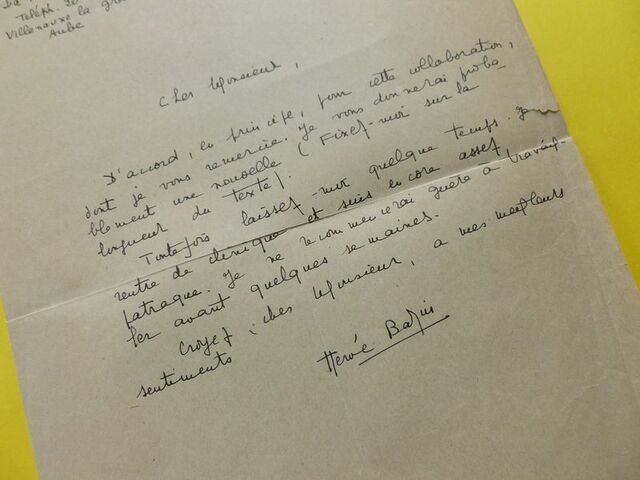 Teléph.
Villenauxe la Gra
Aube
Cher Monsieur,
D'accord, en principe, pour cette collaboration,
dont je vous remercie. Je vous donnerai proba
blement une nouvelle (Fixez-moi sur la
longueur du texte).
Toutefois laissez-moi quelque temps. Je
rentre de clinique et suis encore assez
patraque. Je ne recommencerai guère à travail-
ler avant quelques semaines.
Croyez, cher Monsieur, à mes meilleurs
sentiments
Hervé Bazin